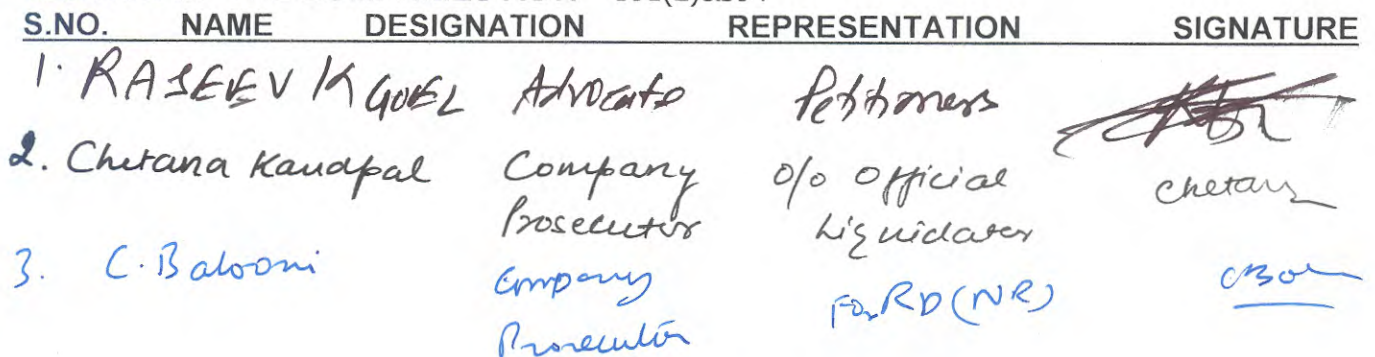 S.NO. NAME DESIGNATION REPRESENTATION SIGNATURE
1. RAJEEV K GOEL Advocate Petitioners
2. Chetana Kandpal Company Prosecutor o/o Official Liquidator Chetana
3. C. Balooni Company Prosecutor For RD (NR)